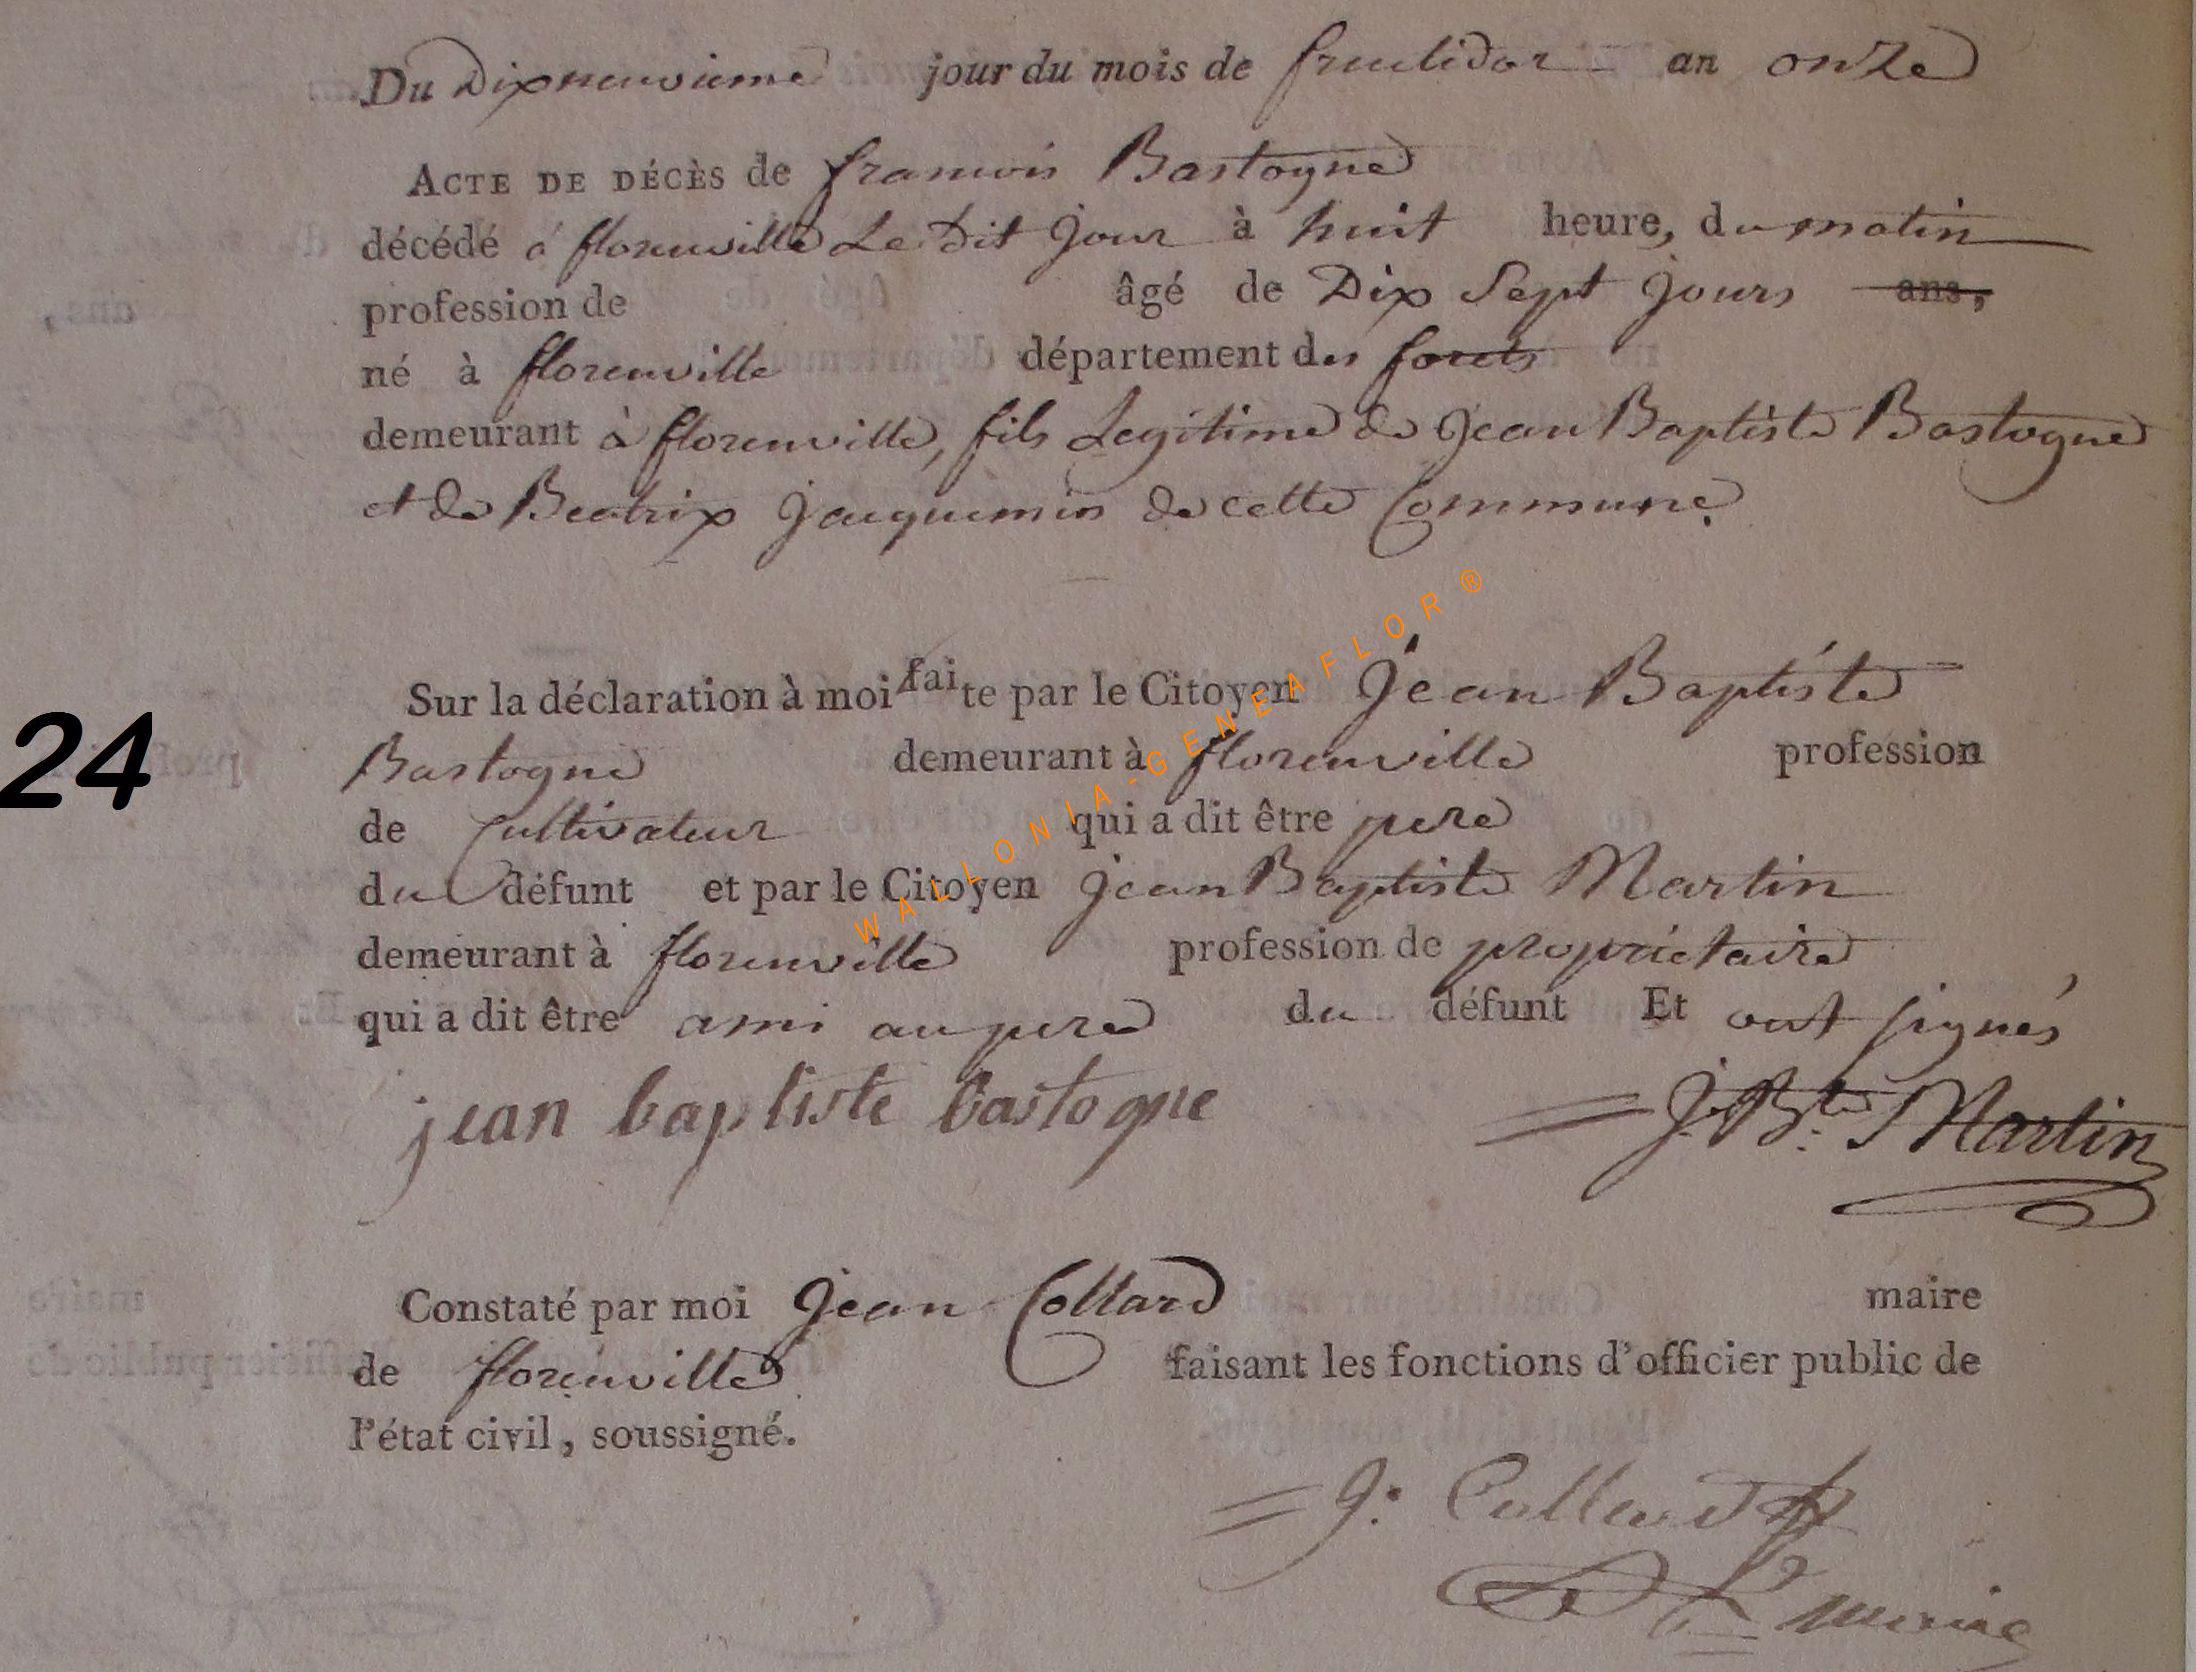 Du Dixneuvieme jour du mois de fructidor - an onze
ACTE DE DÉCÈS de francois Bastogne
décédé à florenville Le Dit jour à huit heure, du matin
profession de âgé de Dix Sept jours ans,
né à florenville département des forets
demeurant à florenville, fils Legitime de Jean Baptiste Bastogne
et de Beatrix Jacquemin de cette Commune.
Sur la déclaration à moi faite par le Citoyen Jean Baptiste
Bastogne demeurant à florenville profession
24
de Cultivateur qui a dit être pere
du défunt et par le Citoyen Jean Baptiste Martin
demeurant à florenville profession de proprietaire
qui a dit être ami au pere du défunt Et ont signés
jean baptiste bastogne = J. Bte: Martin
WALLONIA-GENEAFLOR®
Constaté par moi Jean Collard maire
de florenville faisant les fonctions d'officier public de
l'état civil, soussigné.
= J: Collard
maire